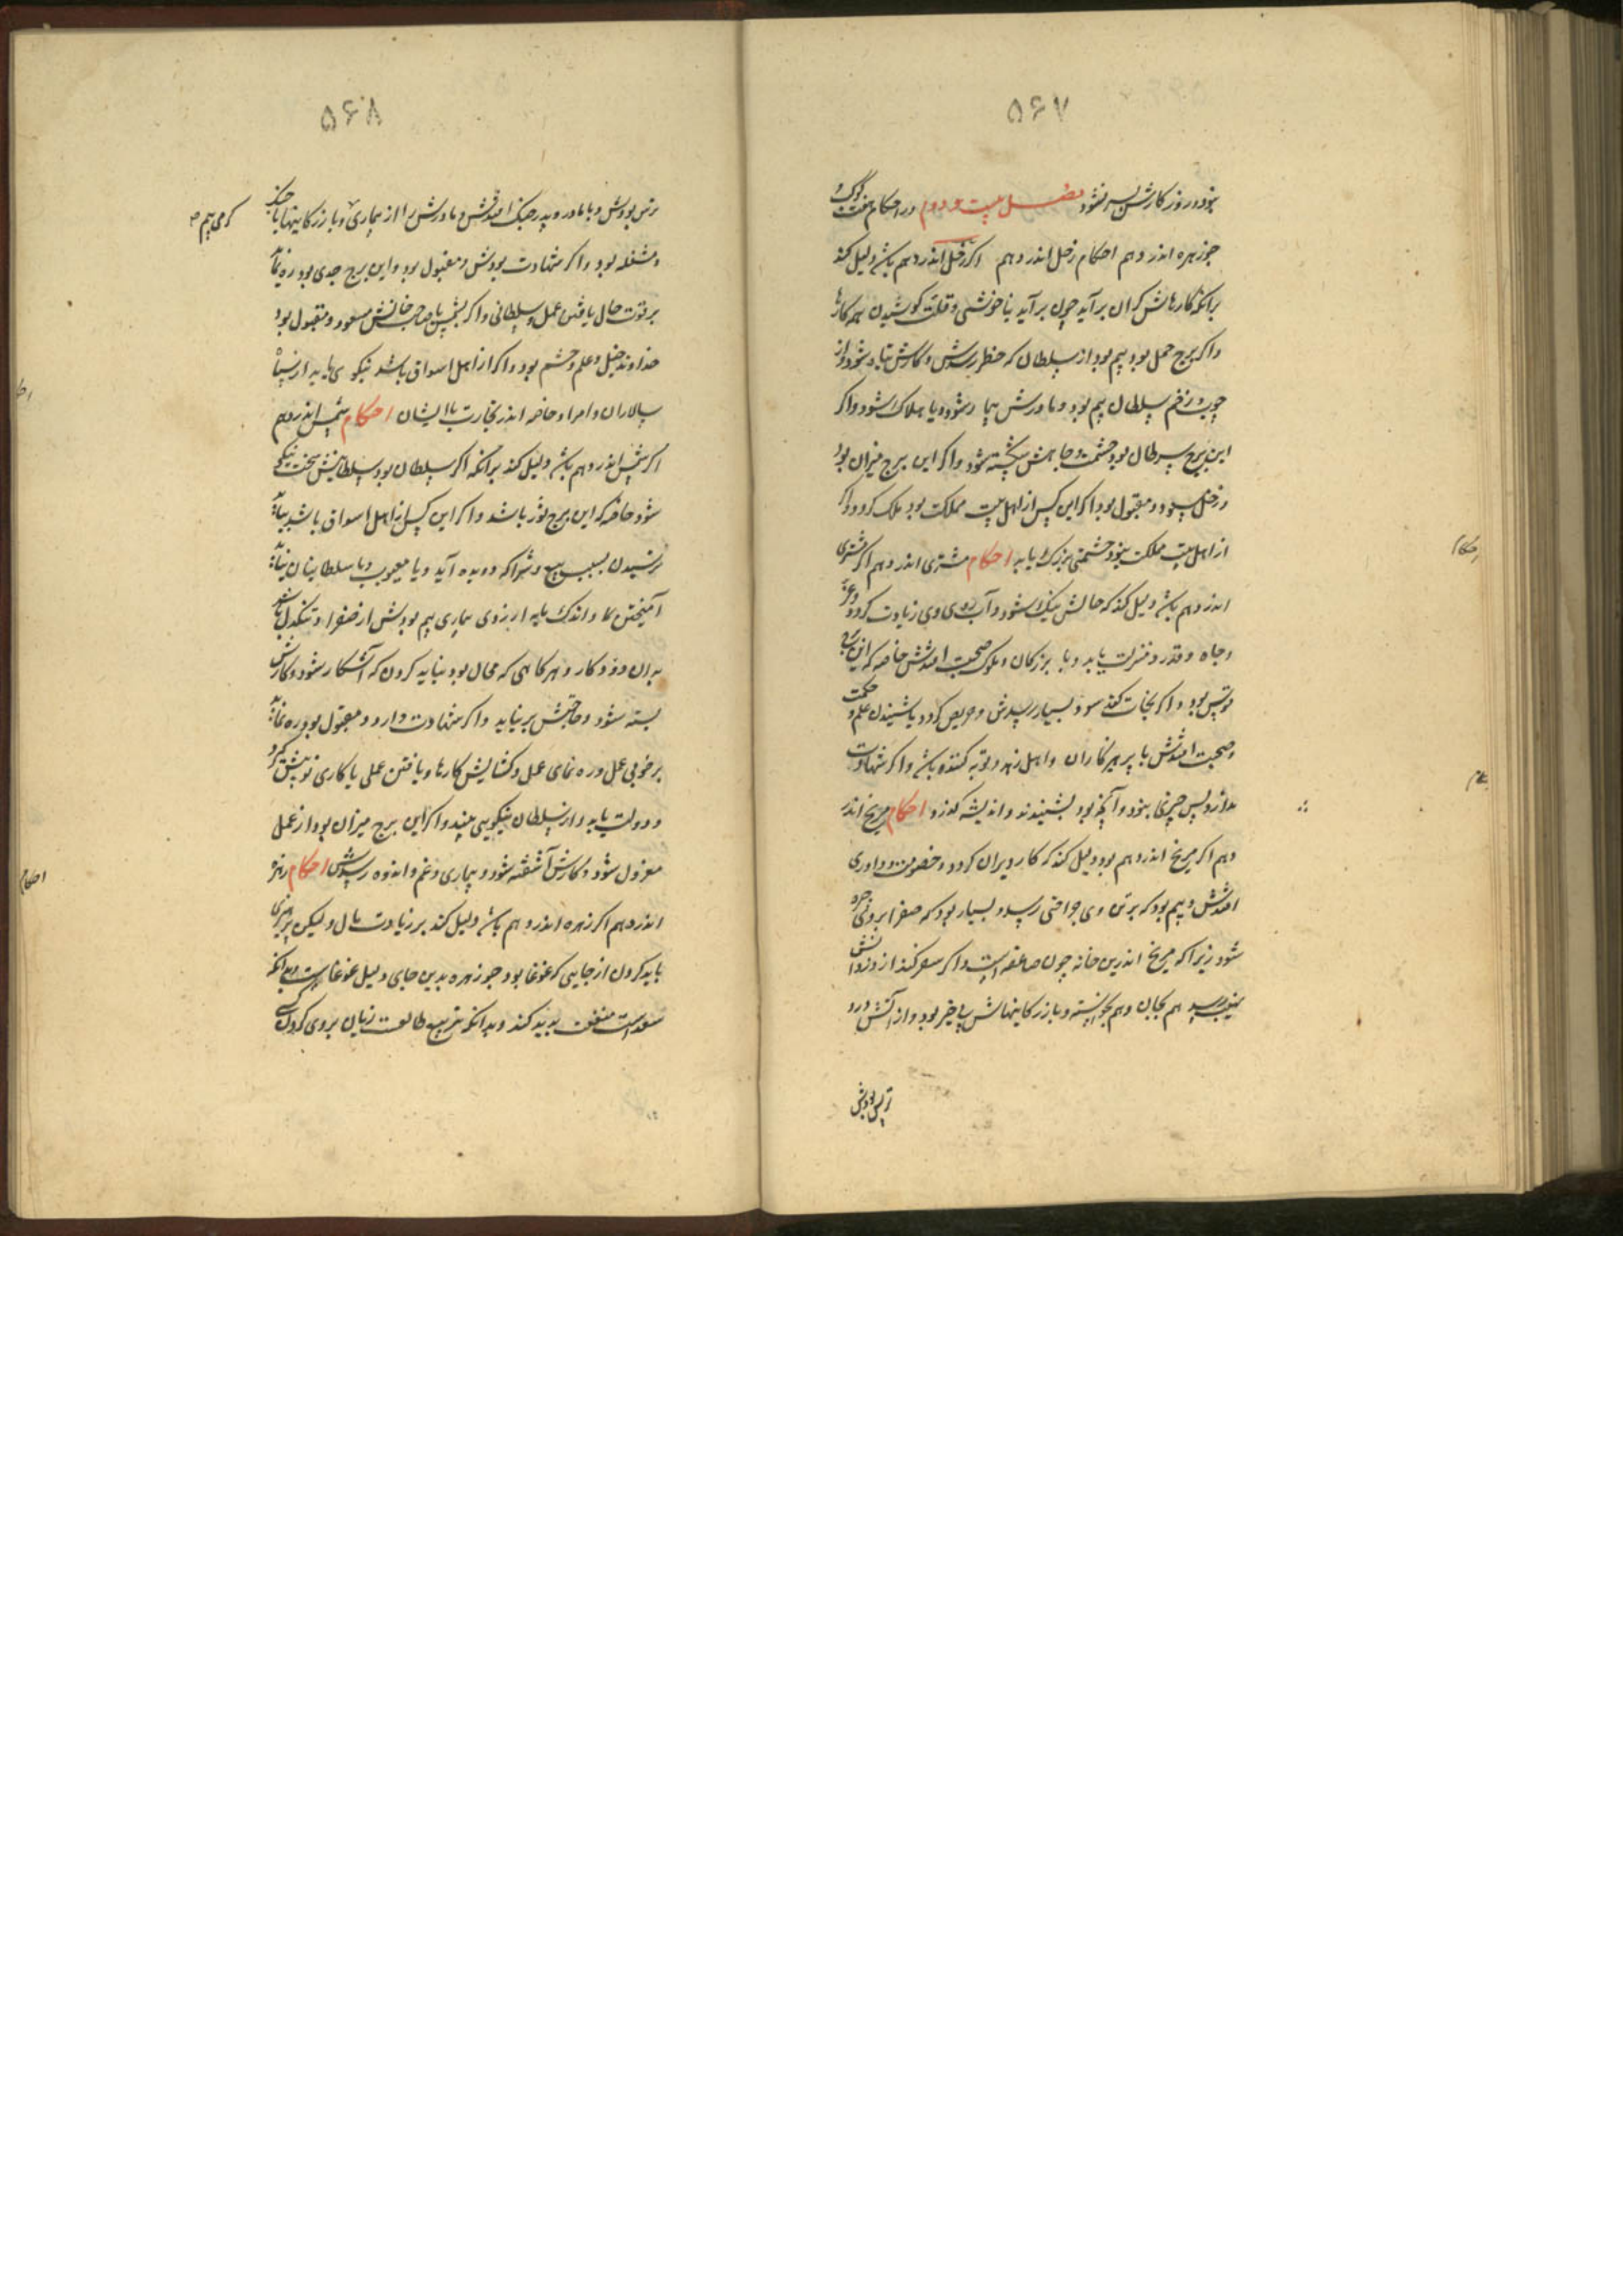 ۵۶۷
بود و روز کارش بسر نشود فصل بیست و دوم در احکام هفت کوکب و
جوزهره اندر دهم احکام زحل اندر دهم اکر زحل اندر دهم باشد دلیل کند
برانکه کارهاش کران برآید چون برآید با خوشی و قلت کوشیدن بهمه کارها
و اکر برج حمل بود بیم بود از سلطان که خطر رسدش و کارش تباه شود و از
چوب و زخم سلطان بیم بود و مادرش بیمار شود و یا هلاک شود و اکر
این برج سرطان بود حشمت و جاهش شکسته شود و اکر این برج میزان بود
و زحل مسعود و مقبول بود اکر این کس از اهل بیت مملکت بود ملک کردد و اکر
از اهل بیت مملکت نبود حشمتی بزرک یابد احکام مشتری اندر دهم اکر مشتری
اندر دهم باشد دلیل کند که حالش نیک شود و آب روی وی زیادت کردد و عز
و جاه و قدر و منزلت یابد و با بزرکان و ملوک صحبت افتدش خاصه که این برج
قوس بود و اکر تجارت کند سود بسیار رسدش و حریص کردد باشنیدن علم و حکمت
و صحبت افتدش با پرهیزکاران و اهل زهد و توبه کننده باشد و اکر شهادت
ندارد بس چیزی نبود و آنچه بود بشنیدند و اندیشه کذرد احکام مریخ اندر
دهم اکر مریخ اندر دهم بود دلیل کند که کار ویران کردد و خصومت و داوری
افتدش و بیم بود که بر تن وی جراحتی رسد و بسیار بود که صفرا بروی چیره
شود زیرا که مریخ اندرین خانه چون صاعقه است و اکر سفر کند از دزدانش
نهیب رسد هم بجان و هم بخواسته و بازرکانیهاش بی خیر بود و از آتش و دزد
ترس بودش
احکام
۵۶۸
ترس بودش و با مادر و پدر جنک افتدش و مادرش را از بیماری و بازرکانیها با جنک
و مشغله بود و اکر شهادت بودش و مقبول بود و این برج جدی بود ره نماید
بر قوت حال یافتن عمل سلطانی و اکر شمس یا صاحب خانش مسعود و مقبول بود
خداوند خیل و علم و حشم بود و اکر از اهل اسواق باشد نیکوی ها یابد از سپاه
سالاران و امرا و خاصه اندر تجارت با ایشان احکام شمس اندر دهم
اکر شمس اندر دهم باشد دلیل کند برانکه اکر سلطان بود سلطانیش سخت نیکو
شود خاصه که این برج ثور باشد و اکر این کس از اهل اسواق باشد بباید
ترسیدن بسبب بیع و شرا که دو بده آید و یا معیوب و با سلطانیان نباید
آمیختن مدام و اندک مایه از روی بیماری بیم بودش از صفرا و تنکدل باشد
بدان دو کار و هر کاهی که محال بود نباید کردن که آشکار شود و کارش
بسته شود و حاجتش برنیاید و اکر شهادت دارد و مقبول بود ره نماید
بر خوبی عمل و ره نمای عمل و کشایش کارها و یافتن عملی یا کاری نو پیش کیرد
و دولت یابد و از سلطان نیکویی بیند و اکر این برج میزان بود از عمل
معزول شود و کارش آشفته شود و بیماری و غم و اندوه رسدش احکام زهره
اندر دهم اکر زهره اندر دهم باشد دلیل کند بر زیادت مال و لیکن پرهیزی
باید کردن از جایی که غوغا بود جو زهره بدین جای دلیل غوغاست و بدانکه
سعد است منفعت پدید کند و بدانکه تربیع طالعست زیان بروی کردن کسی
احکام